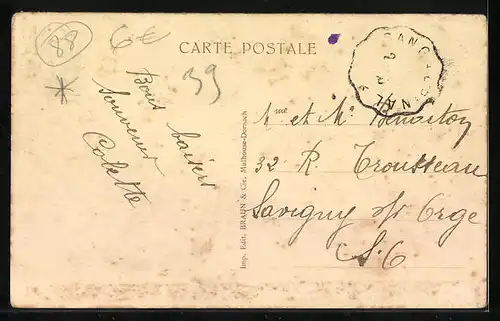 88
6€
39
CARTE POSTALE
Bons baisers
Souvenir
Colette
Imp. Edit. BRAUN & Cie, Mulhouse-Dornach
Mme et Mr
32 R. Trousseau
Savigny s/ Orge
S. O